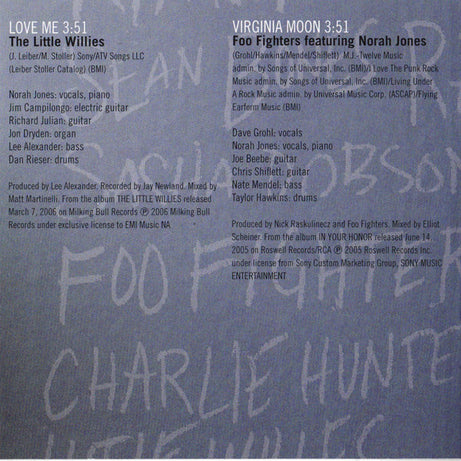 LOVE ME 3:51
The Little Willies
(J. Leiber/M. Stoller) Sony/ATV Songs LLC
(Leiber Stoller Catalog) (BMI)
Norah Jones: vocals, piano
Jim Campilongo: electric guitar
Richard Julian: guitar
Jon Dryden: organ
Lee Alexander: bass
Dan Rieser: drums
Produced by Lee Alexander. Recorded by Jay Newland. Mixed by
Matt Martinelli. From the album THE LITTLE WILLIES released
March 7, 2006 on Milking Bull Records ℗ 2006 Milking Bull
Records under exclusive license to EMI Music NA
VIRGINIA MOON 3:51
Foo Fighters featuring Norah Jones
(Grohl/Hawkins/Mendel/Shiflett) M.J.-Twelve Music
admin. by Songs of Universal, Inc. (BMI)/I Love The Punk Rock
Music admin. by Songs of Universal, Inc. (BMI)/Living Under
A Rock Music admin. by Universal Music Corp. (ASCAP)/Flying
Earform Music (BMI)
Dave Grohl: vocals
Norah Jones: vocals, piano
Joe Beebe: guitar
Chris Shiflett: guitar
Nate Mendel: bass
Taylor Hawkins: drums
Produced by Nick Raskulinecz and Foo Fighters. Mixed by Elliot
Scheiner. From the album IN YOUR HONOR released June 14,
2005 on Roswell Records/RCA ℗ 2005 Roswell Records Inc.
under license from Sony Custom Marketing Group, SONY MUSIC
ENTERTAINMENT
SEAN
SASHA DOBSON
FOO FIGHTER
CHARLIE HUNTE
LITTLE WILLIES